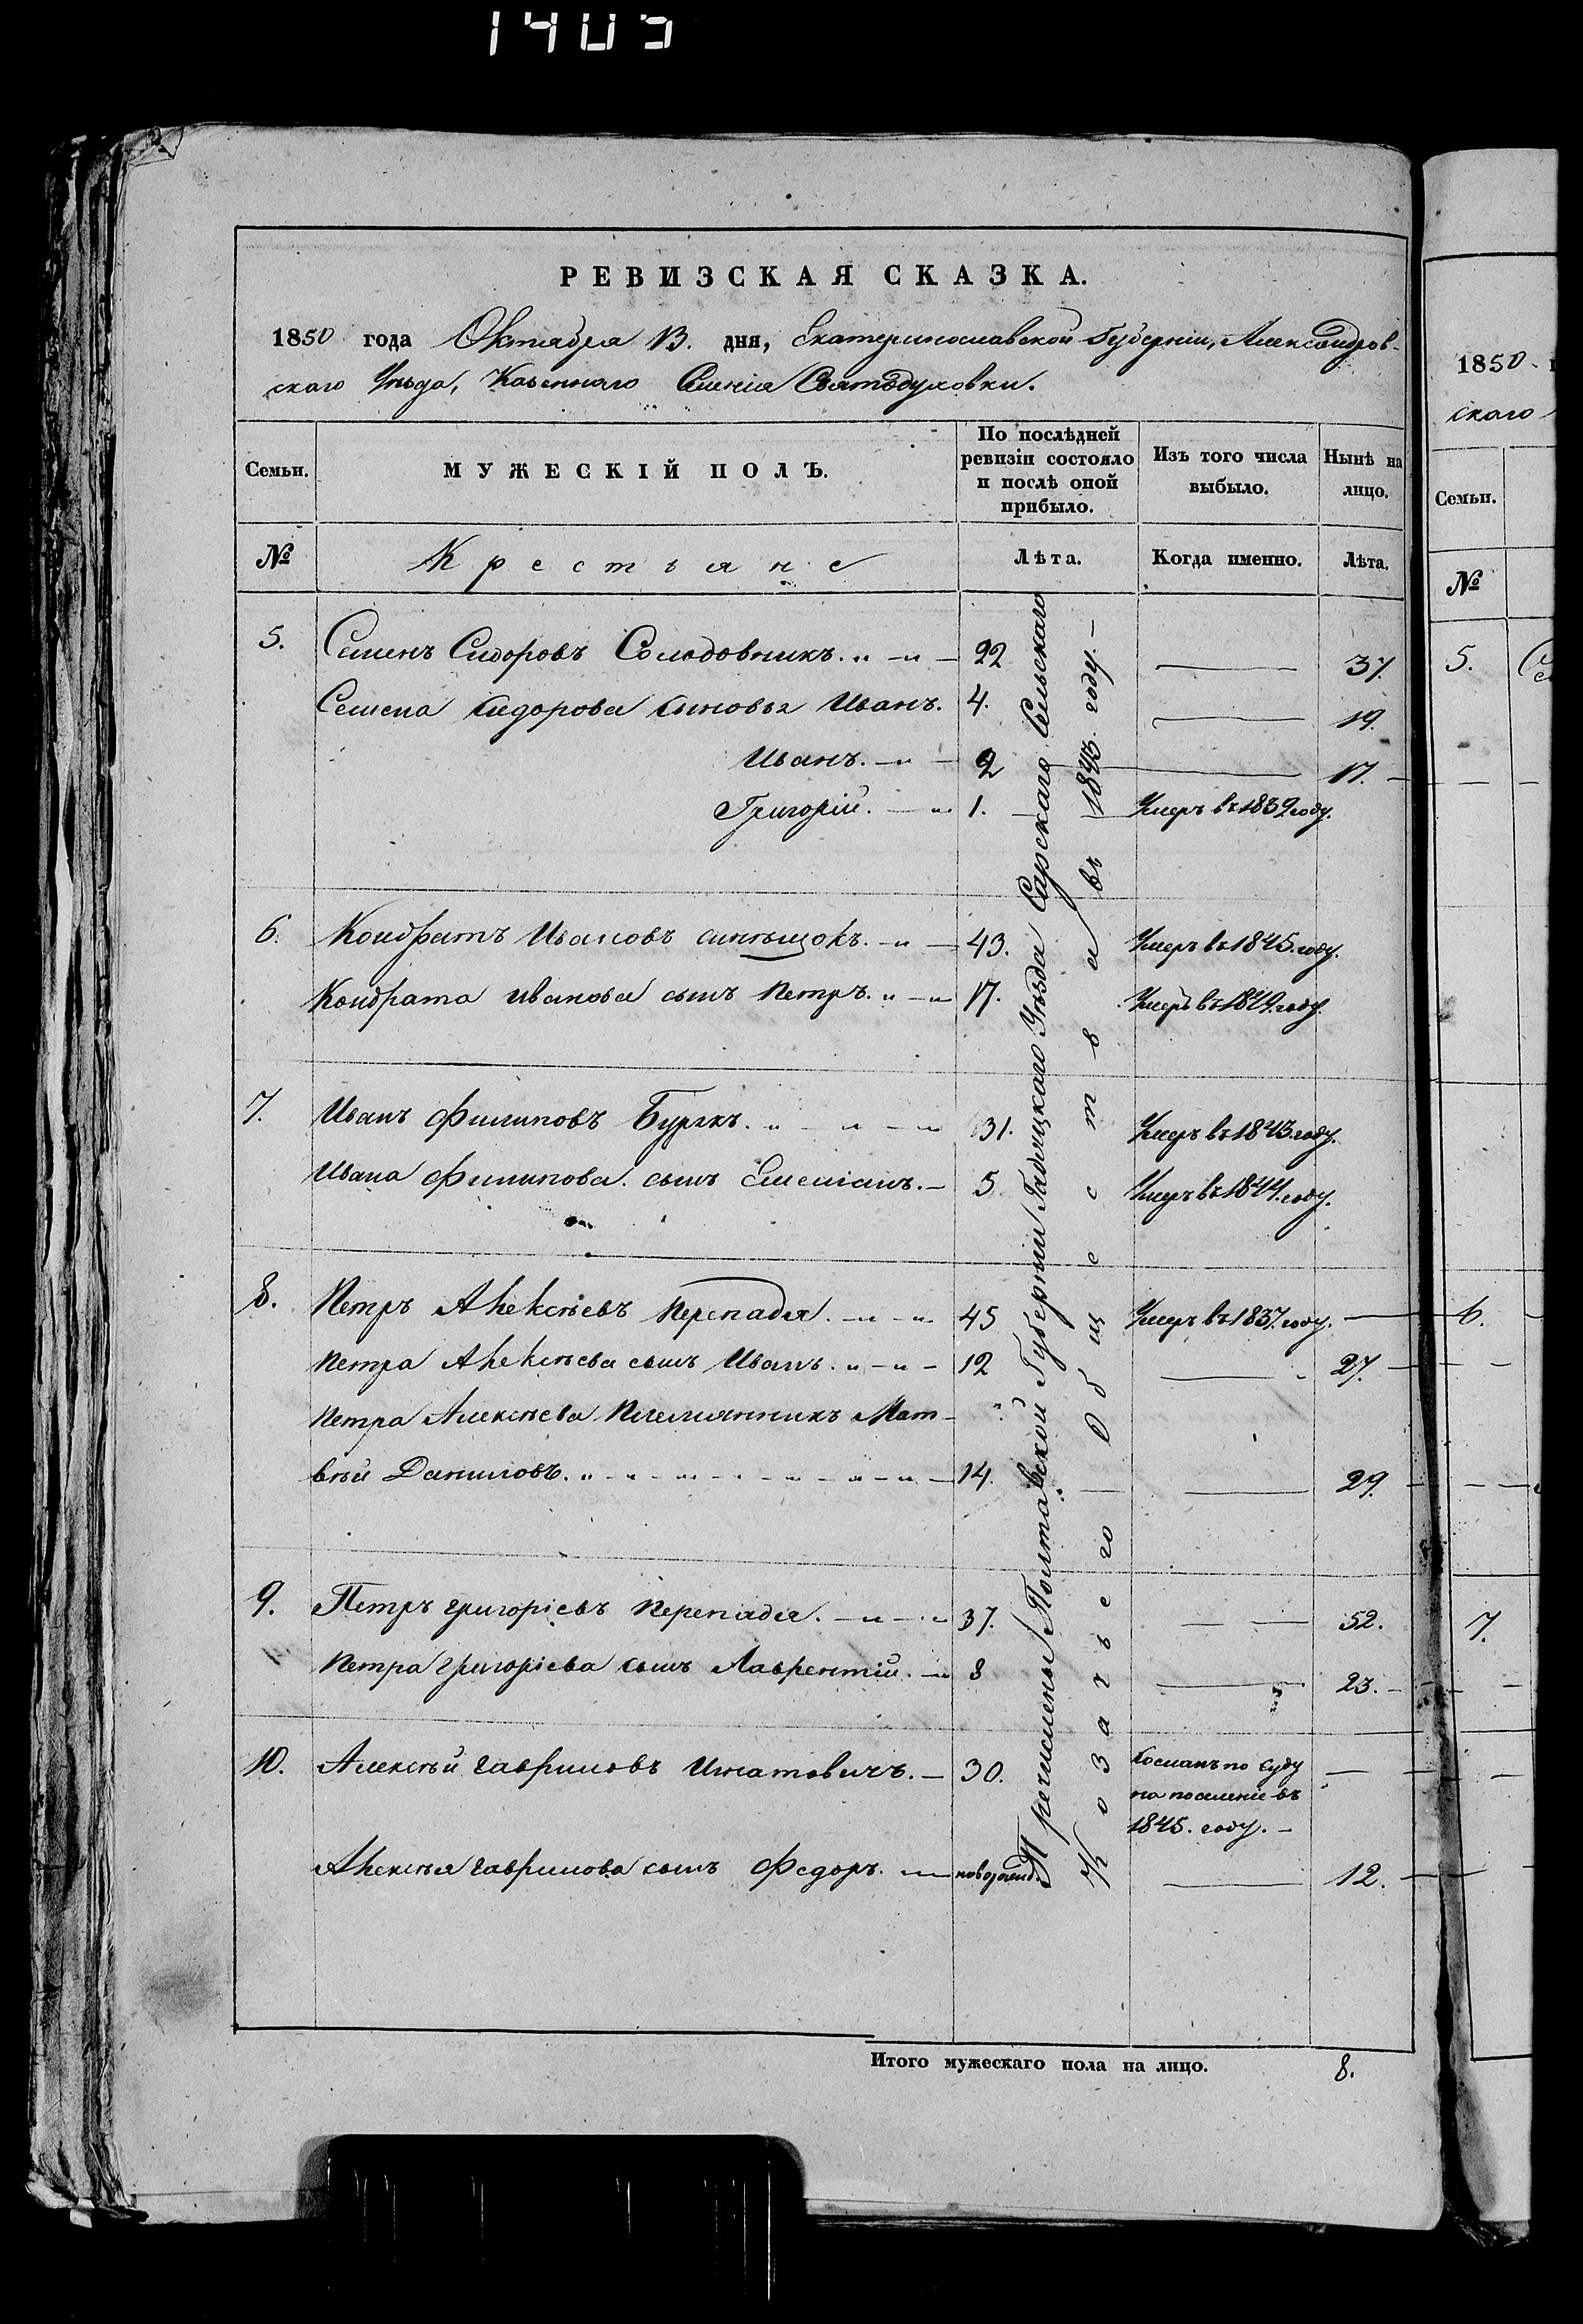 1403
РЕВИЗСКАЯ СКАЗКА.
1850 года Октября 13. дня, Екатеринославской Губерніи, Александров-
скаго Уѣзда, Казеннаго Селенія Святодуховки.
Семьи. МУЖЕСКІЙ ПОЛЪ. По послѣдней ревизіи состояло и послѣ оной прибыло. Изъ того числа выбыло. Нынѣ на лицо.
№ Крестьяне Лѣта. Когда именно. Лѣта.
5. Семенъ Сидоровъ Солодовникъ. 22 — 37.
Семена Сидорова сыновья Иванъ. 4. — 19.
Иванъ. 2 — 17.
Григорій. 1. Умеръ въ 1839 году.
6. Кондратъ Ивановъ 43. Умеръ въ 1845. году.
Кондрата Иванова сынъ Петръ. 17. Умеръ въ 1849. году.
7. Иванъ Филиповъ 31. Умеръ въ 1843. году.
Ивана Филипова сынъ Емеліанъ. 5. Умеръ въ 1844. году.
8. Петръ Алексѣевъ Перепадя. 45 Умеръ въ 1837. году. —
Петра Алексѣева сынъ Иванъ. 12 — 27.
Петра Алексѣева племянникъ Мат-
вѣй Даниловъ. 14. — 29.
9. Петръ Григоріевъ Перепадя. 37. — 52.
Петра Григоріева сынъ Лаврентій. 8 — 23.
10. Алексѣй Гавриловъ Игнатовичъ. 30. Посланъ по суду —
на поселеніе въ
1845. году.
Алексѣя Гаврилова сынъ Федоръ. новорожд. — 12.
Перечислены Полтавской Губерніи Гадяцкаго Уѣзда Сарскаго Сельскаго
Козачьего Общества въ 1843. году.
Итого мужескаго пола на лицо. 8.
1850
скаго
Семьи.
№
5.
6.
7.